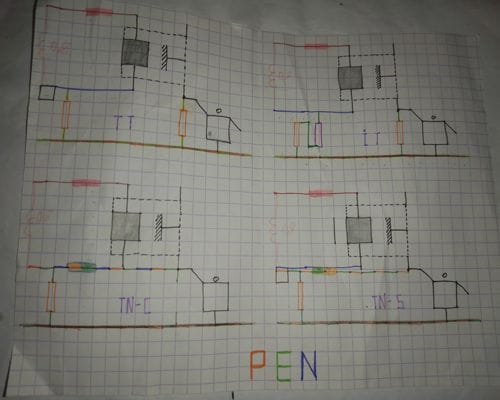 TT
iT
TN-C
TN-S
PEN